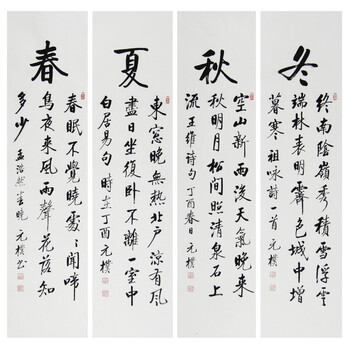 春
春眠不覺曉處〻聞啼
鳥夜來風雨聲花落知
多少 孟浩然春曉 元樸书
夏
東窓晚無熱北戶涼有風
盡日坐復卧不離一室中
白居易句 時在丁酉 元樸
秋
空山新雨後天氣晚來
秋明月松间照清泉石上
流 王維诗句 丁酉春日 元樸
冬
終南陰嶺秀積雪浮雲
端林表明霽色城中增
暮寒 祖咏詩一首 元樸